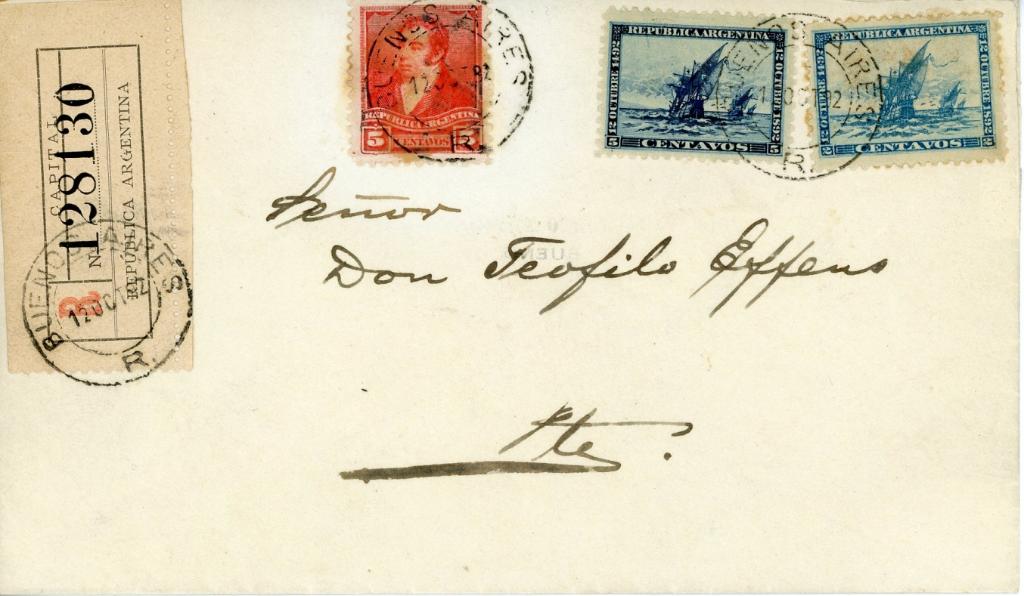 CAPITAL
Nº 128130
REPÚBLICA ARGENTINA
R
BUENOS AIRES
12 OCT 92
R.
REPUBLICA ARGENTINA
5 CENTAVOS 5
BUENOS AIRES
12 OCT 92
R.
REPUBLICA ARGENTINA
12 OCTUBRE 1492
12 OCTUBRE 1892
5 CENTAVOS 5
REPUBLICA ARGENTINA
12 OCTUBRE 1492
12 OCTUBRE 1892
2 CENTAVOS 2
BUENOS AIRES
12 OCT 92
R.
Señor
Don Teofilo Effens
Pte.